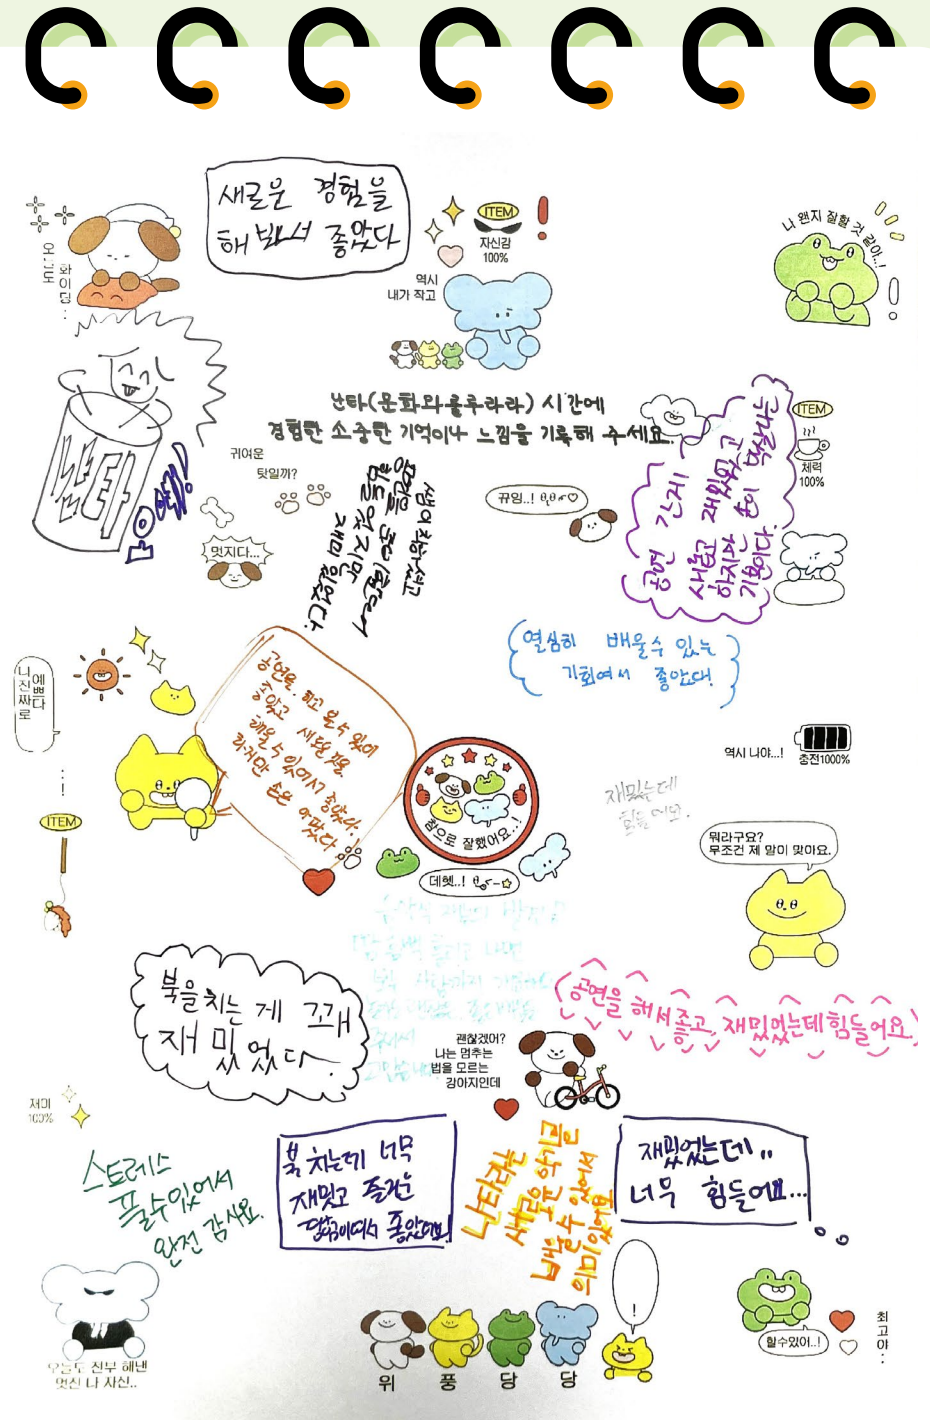 새로운 경험을
해봐서 좋았다
오늘도
화이팅..
ITEM
자신감
100%
역시
내가 작고
나 왠지 잘할 것 같아..!
난타(문화와룰루라라) 시간에
경험한 소중한 기억이나 느낌을 기록해 주세요.
난타
귀여운
탓일까?
멋지다...
쌤이 착하셨고
힘들었지만
재미있었다.
뀨잉..!
ITEM
체력
100%
공연
재밌있고
새롭고
하지만 손이
기분이다.
열심히 배울수 있는
기회여서 좋았다!
나 진짜로
예쁘다
ITEM
공연을 하고 볼 수 있어
좋았고 새로운 것을
배울 수 있어서 좋았다.
하지만 손은 아팠다.
참으로 잘했어요...!
데헷..!
역시 나야...!
충전1000%
재밌는데
힘들어요.
뭐라구요?
무조건 제 말이 맞아요.
북을 치는 게 꽤
재밌었다.
공연을 해서 좋고, 재밌었는데 힘들어요
괜찮겠어?
나는 멈추는
법을 모르는
강아지인데
재미
100%
스트레스
풀 수 있어서
완전 감사요.
북 치는데 너무
재밌고 즐거운
활동이여서 좋았어요!
난타라는
새로운 악기를
배울 수 있어서
의미있어요
재밌었는데..
너무 힘들어요...
오늘도 전부 해낸
멋진 나 자신..
위 풍 당 당
!
할수있어..!
최고야..